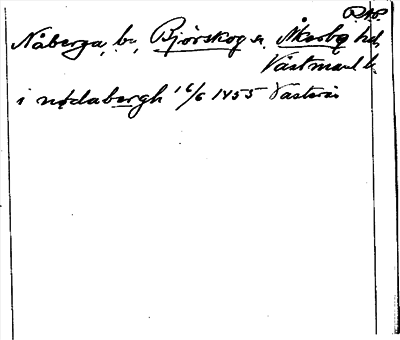 P.AP.
Nåberga, by, Björskog sn, Åkerbo hd,
Västmanl. l.
i nødabergh 16/6 1455 Västerås